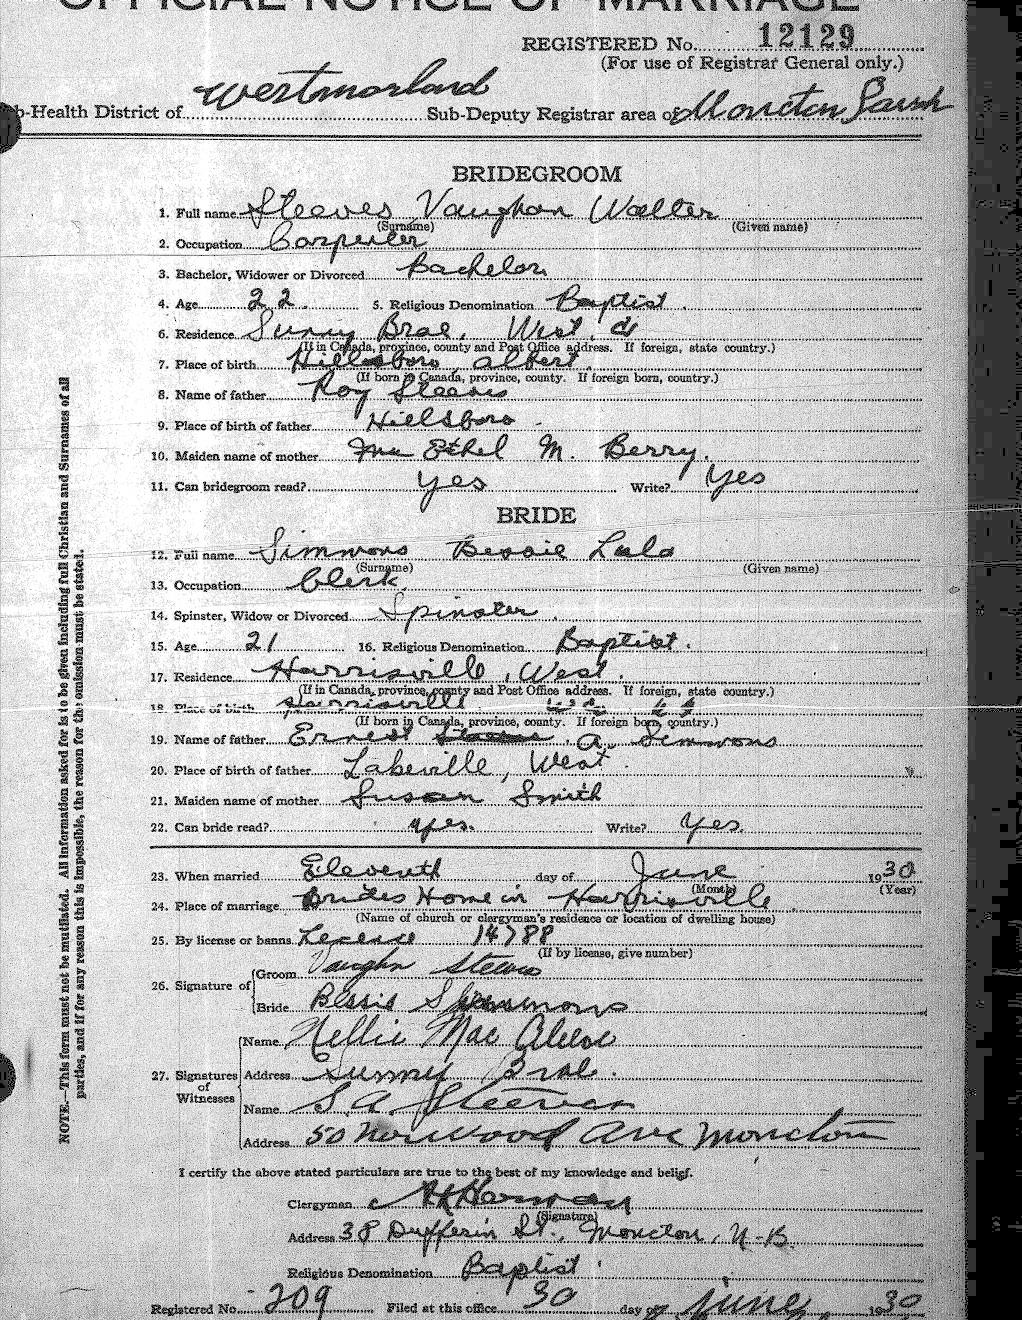 OFFICIAL NOTICE OF MARRIAGE
REGISTERED No. 12129
(For use of Registrar General only.)
b-Health District of Westmorland Sub-Deputy Registrar area of Moncton Parish
BRIDEGROOM
1. Full name Steeves Vaughan Walter
(Surname) (Given name)
2. Occupation Carpenter
3. Bachelor, Widower or Divorced Bachelor
4. Age 22 5. Religious Denomination Baptist
6. Residence Sunny Brae, West.
(If in Canada, province, county and Post Office address. If foreign, state country.)
7. Place of birth Hillsboro albert
(If born in Canada, province, county. If foreign born, country.)
8. Name of father Roy Steeves
9. Place of birth of father Hillsboro
10. Maiden name of mother Ethel M. Berry.
11. Can bridegroom read? yes Write? Yes
BRIDE
12. Full name Simmons Bessie Lula
(Surname) (Given name)
13. Occupation Clerk
14. Spinster, Widow or Divorced Spinster
15. Age 21 16. Religious Denomination Baptist.
17. Residence Harrisville, West.
(If in Canada, province, county and Post Office address. If foreign, state country.)
18. Place of birth Harrisville
(If born in Canada, province, county. If foreign born, country.)
19. Name of father Ernest A. Simmons
20. Place of birth of father Lakeville, West.
21. Maiden name of mother Susan Smith
22. Can bride read? yes. Write? Yes.
23. When married Eleventh day of June 1930
(Month) (Year)
24. Place of marriage Brides Home in Harrisville
(Name of church or clergyman's residence or location of dwelling house)
25. By license or banns License 14788
(If by license, give number)
26. Signature of Groom Vaughn Steeves
Bride Bessie Simmons
27. Signatures of Witnesses
Name Nellie Mac
Address Sunny Brae.
Name S. A. Steeves
Address 50 Norwood Ave Moncton
I certify the above stated particulars are true to the best of my knowledge and belief.
Clergyman
(Signature)
Address 38 Dufferin St., Moncton, N-B.
Religious Denomination Baptist
Registered No. 209 Filed at this office 30 day of June, 1930
NOTE.—This form must not be mutilated. All information asked for is to be given including full Christian and Surnames of all
parties, and if for any reason this is impossible, the reason for the omission must be stated.